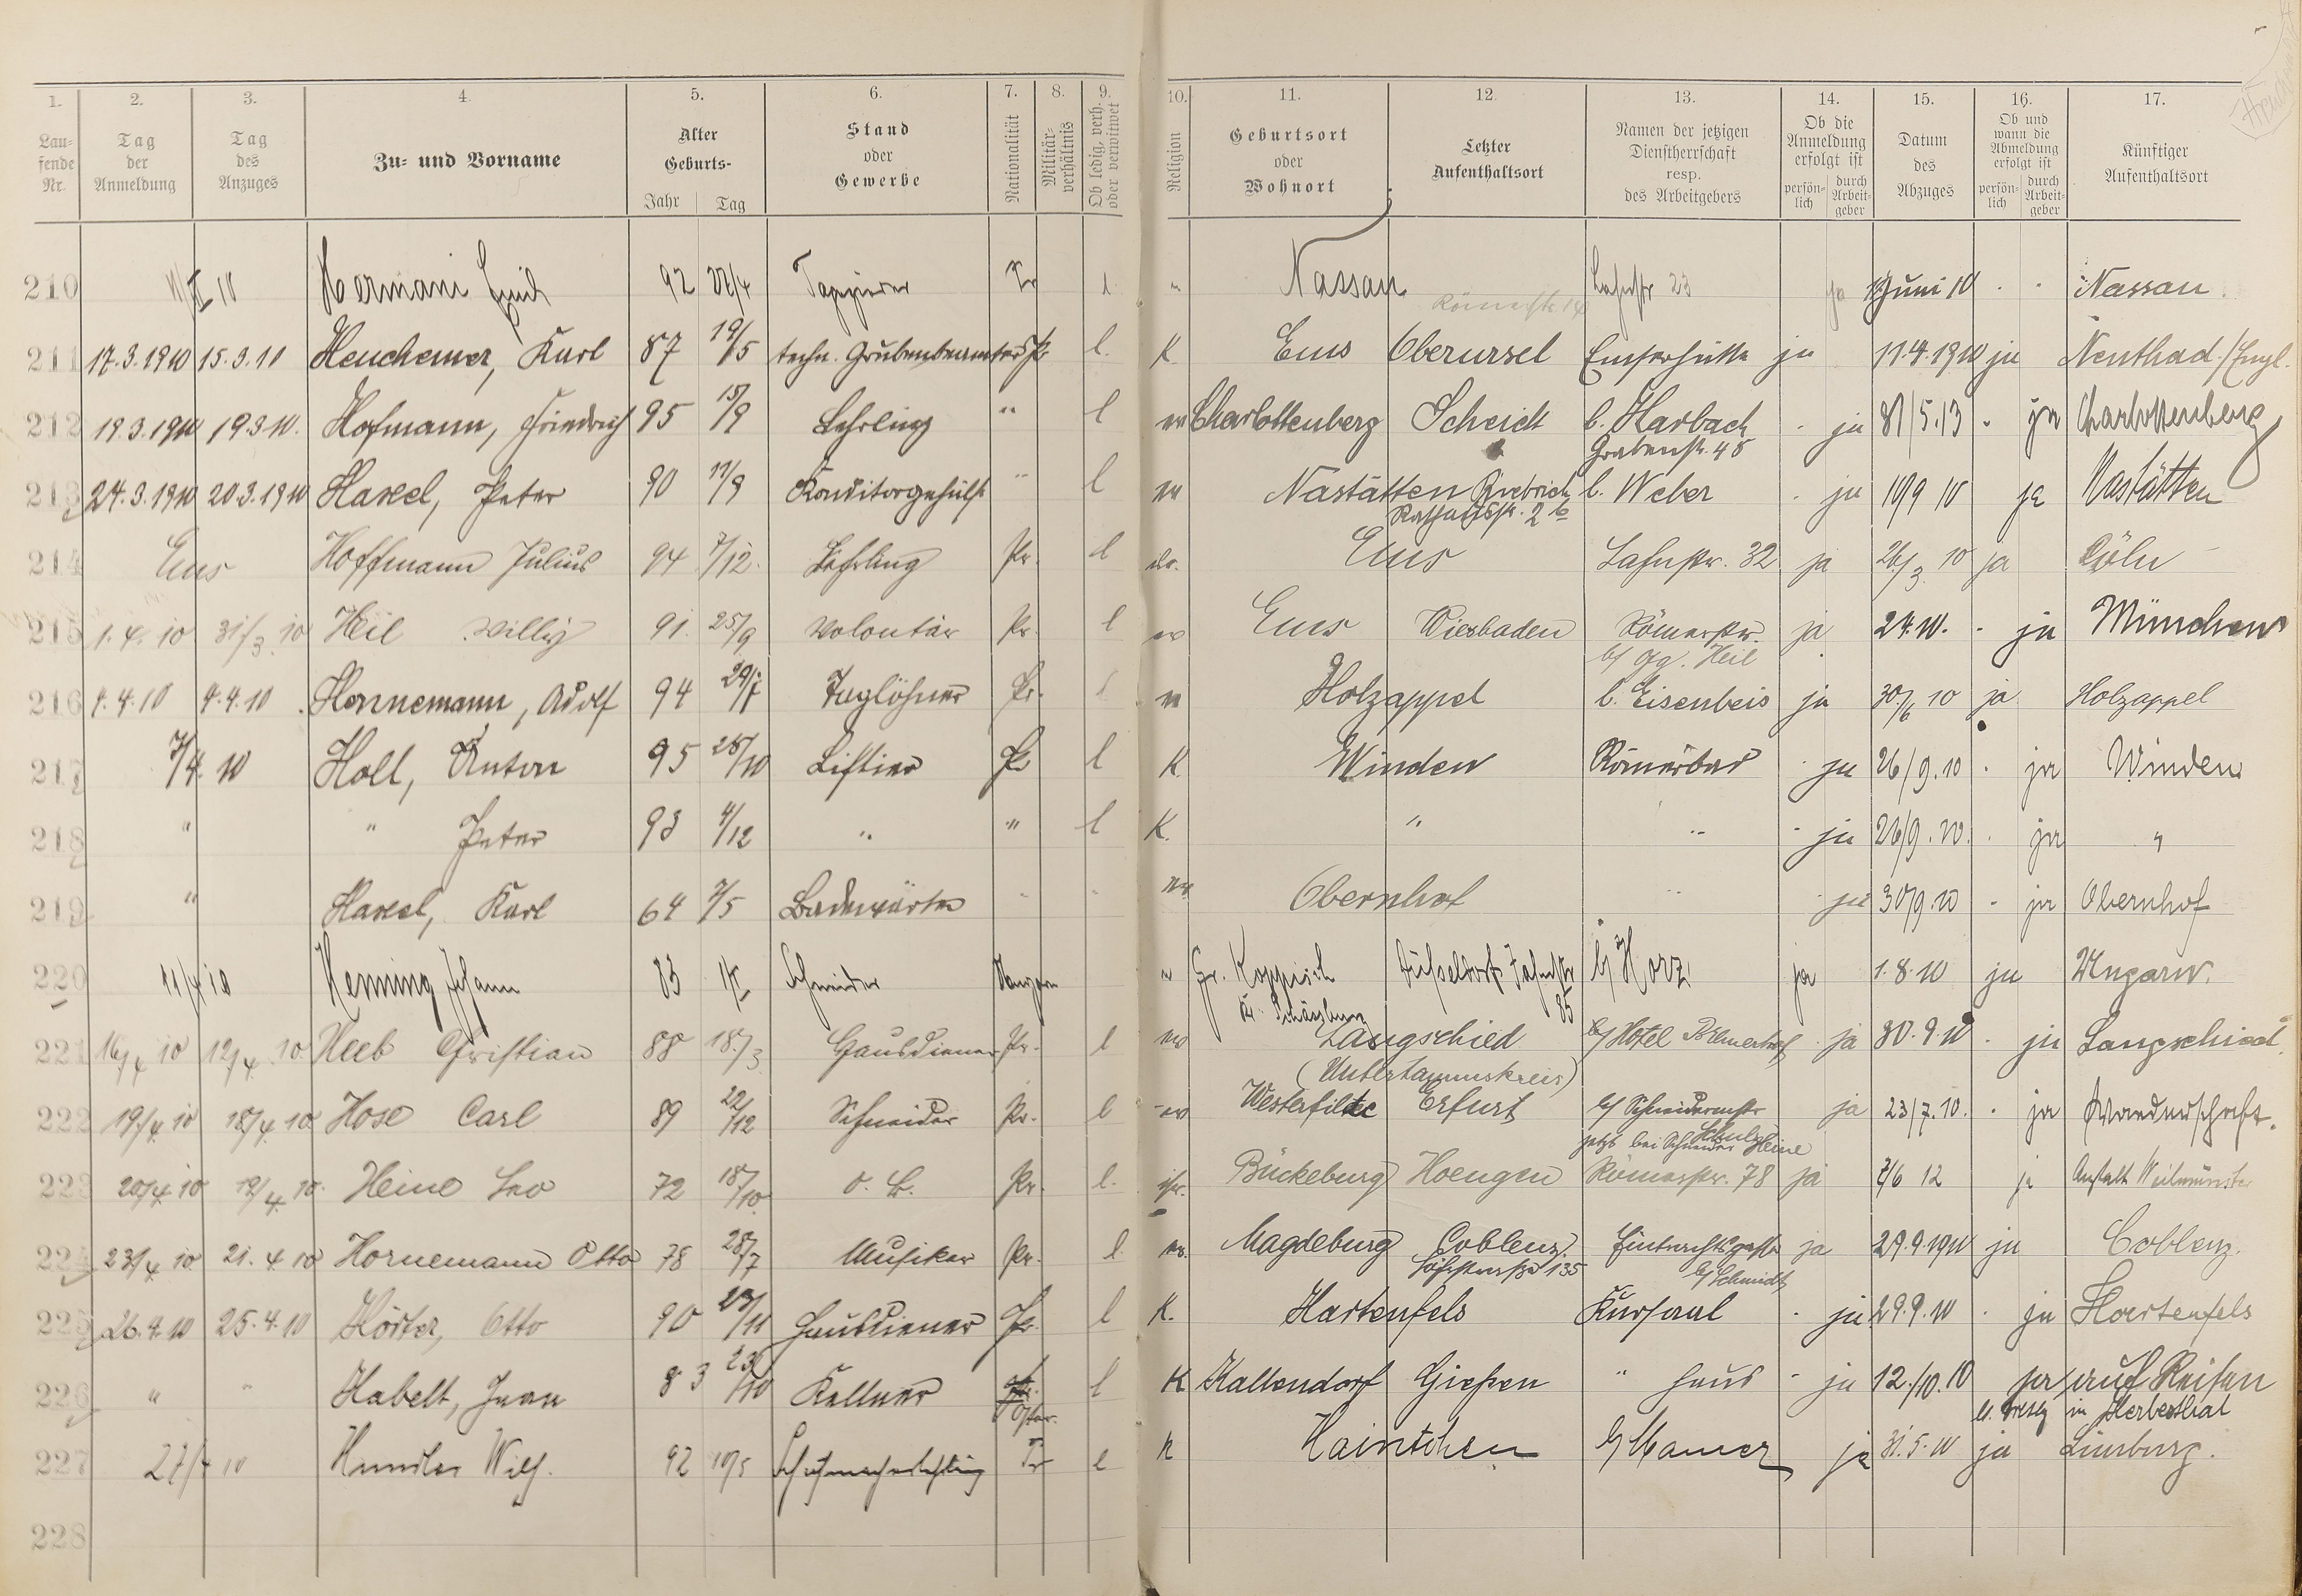 1. 2. 3. 4. 5. 6. 7. 8. 9. 10. 11. 12. 13. 14. 15. 16. 17.
Laufende Nr. Tag der Anmeldung Tag des Anzuges Zu- und Vorname Alter Geburts- Jahr Tag Stand oder Gewerbe Nationalität Militärverhältnis Ob ledig, verh. oder verwitwet Religion Geburtsort oder Wohnort Letzter Aufenthaltsort Namen der jetzigen Dienstherrschaft resp. des Arbeitgebers Ob die Anmeldung erfolgt ist persönlich durch Arbeitgeber Datum des Abzuges Ob und wann die Abmeldung erfolgt ist persönlich durch Arbeitgeber Künftiger Aufenthaltsort
210 Hermani Emil 92 22/4 Tapezierer Pr l Nassau Lahnstr 23 ja Juni 10 Nassau
Römerstr. 14
211 17.3.1910 15.3.10 Heuchemer, Karl 87 19/5 techn. Grubenbeamter Pr l. K. Ems Oberursel Emserhütte ja 11.4.1910 ja /Engl.
212 19.3.1910 19.3.10. Hofmann, Friedrich 95 15/9 Lehrling " l Charlottenberg Scheidt b. Harbach - ja 31/5.13 - ja Charlottenberg
Grabenstr. 45
213 24.3.1910 20.3.1910 Peter 90 11/9 Konditorgehülfe " l Nastätten Biebrich b. Weber - ja 19/9 10 ja Nastätten
Rathausstr. 2
214 Ems Hoffmann Julius 94 7/12. Lehrling Pr. l Ems Lahnstr. 32 ja 26/3. 10 ja Cöln
215 1. 4. 10 31/3. 10 Heil Willy 91. 25/9 Volontär Pr. l Ems Wiesbaden Römerstr. ja 2.4.10. - ja München
b/ Gg. Heil
216 4.4.10 4.4.10. Hannemann, Adolf 94 29/7 Taglöhner Pr. l Holzappel b. Eisenbeis ja 30./6 10 ja Holzappel
217 7/4. 10 Holl, Anton 95 25/10 Liftier Pr l K. Winden Römerbad - ja 26/9.10 - ja Winden
218 " " Peter 93 4/12 " " l K. " " - ja 26/9.10. - ja "
219 " Karl 64 7/5 Badewärter " " Obernhof " - ja 30/9.10 - ja Obernhof
220 11/4 10 Henning Johann 83 Schneider Ungarn Gr. Koppisch Düsseldorf Jahnstr b/ Horz ja 1.8.10 ja Ungarn.
85
221 16/4 10 12/4. 10 Heeb Christian 88 18./3 Hausdiener Pr. l Langschied b/ Hotel - ja 30.9.10 - ja Langschied.
(Untertaunuskreis)
222 19./4 10 18/4. 10 Hose Carl 89 22/12 Schneider Pr. l Erfurt b/ Schneidermstr ja 23/7.10. - ja Wanderschaft.
Schulz
jetzt bei Schneider Heine
223 20/4 10 19/4. 10. Heine Leo 72 18/10. o. G. Pr. l. isr. Bückeburg Hoengen Römerstr. 78 ja 7/6 12 ja Anstalt Weilmünster
224 23/4 10 21. 4. 10 Hornemann Otto 78 28/7 Musiker Pr. l. Magdeburg Coblenz. Eintrachtsgasse ja 29.9.1910 ja Coblenz.
135 b/ Schmidt
225 26.4.10 25.4.10 Hörter, Otto 90 Hausdiener Pr. l K. Hartenfels Kursaal - ja 29.9.10 - ja Hartenfels
226 " " Habelt, Jean 83 23/10 Kellner Östr. l K Kaltendorf Giessen " haus - ja 12./10.10 ja auf Reisen
in Herbesthal
227 27/4 10 92 10/5 Schuhmacherlehrling Pr l K Haintchen b/ Mamer ja 31.5.10 ja Limburg.
228